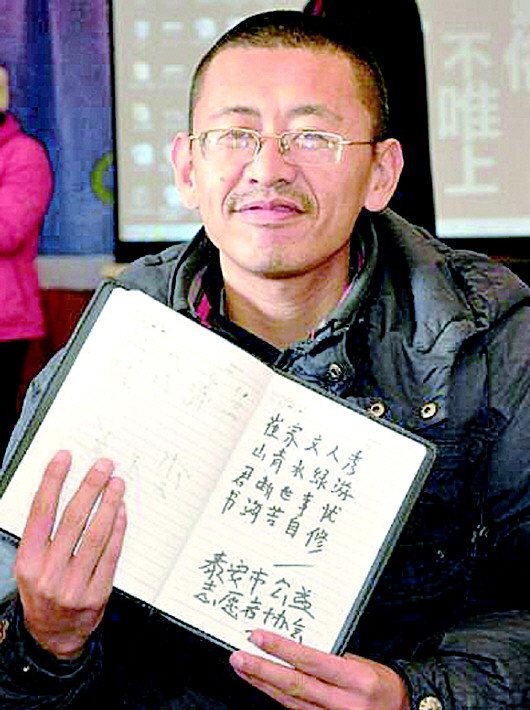 不唯上
崔家文人秀
山青水绿游
君断世事忧
书海苦自修
泰安市公益
志愿者协会